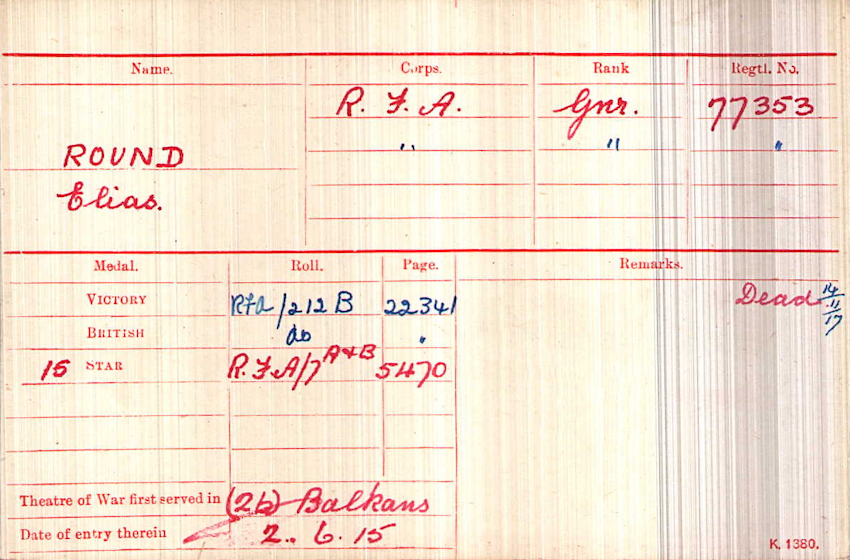 Name. Corps. Rank Regtl. No.
R. F. A. Gnr. 77353
" " "
ROUND
Elias.
Medal. Roll. Page. Remarks.
VICTORY RFA/212 B 22341 Dead 14/11/17
BRITISH do "
15 STAR R.F.A/7 A+B 5470
Theatre of War first served in (2b) Balkans
Date of entry therein 2. 6. 15
K. 1380.